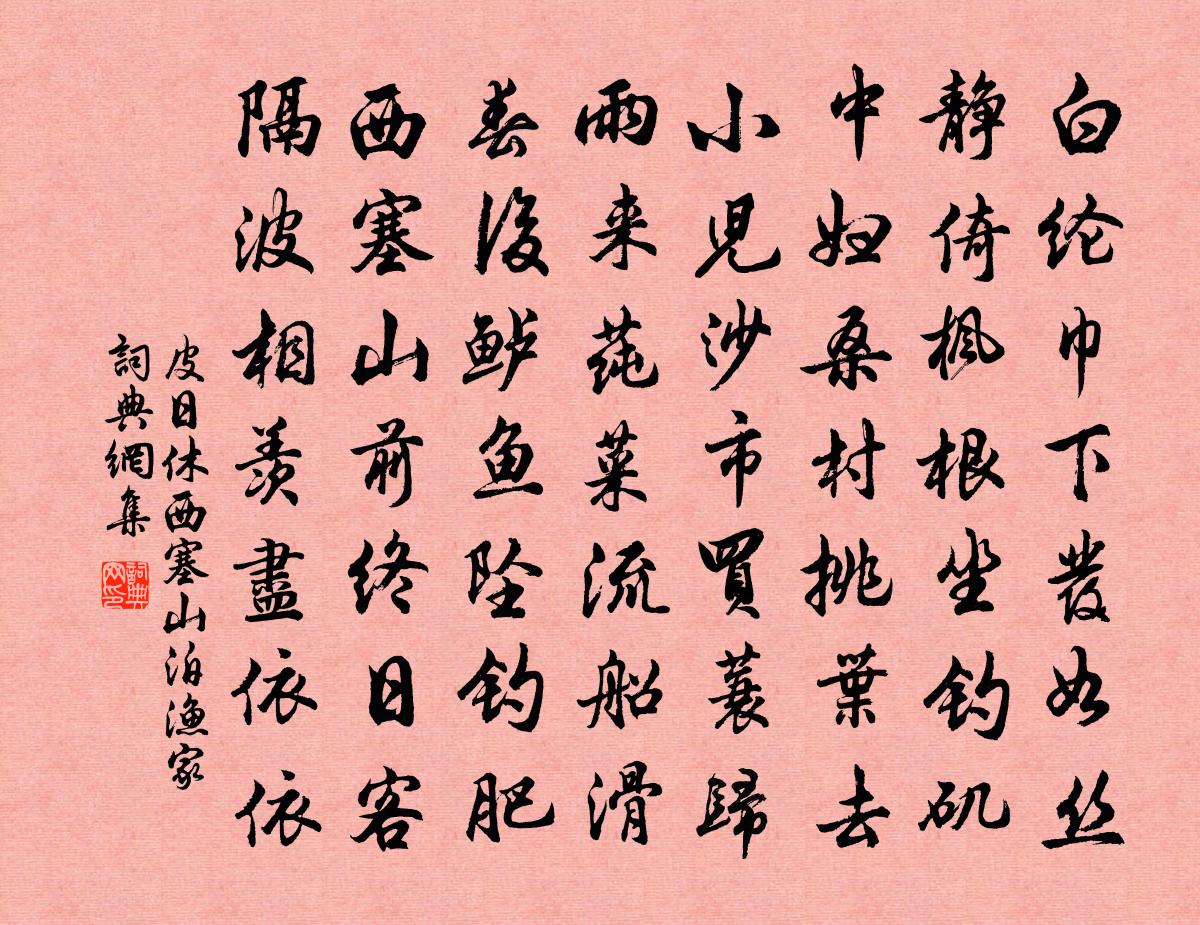 白纶巾下發如丝
静倚枫根坐钓矶
中妇桑村挑葉去
小児沙市買蓑歸
雨来莼菜流船滑
春後鲈鱼坠钓肥
西塞山前终日客
隔波相羡盡依依
皮日休西塞山泊渔家
詞典網集
詞典网印